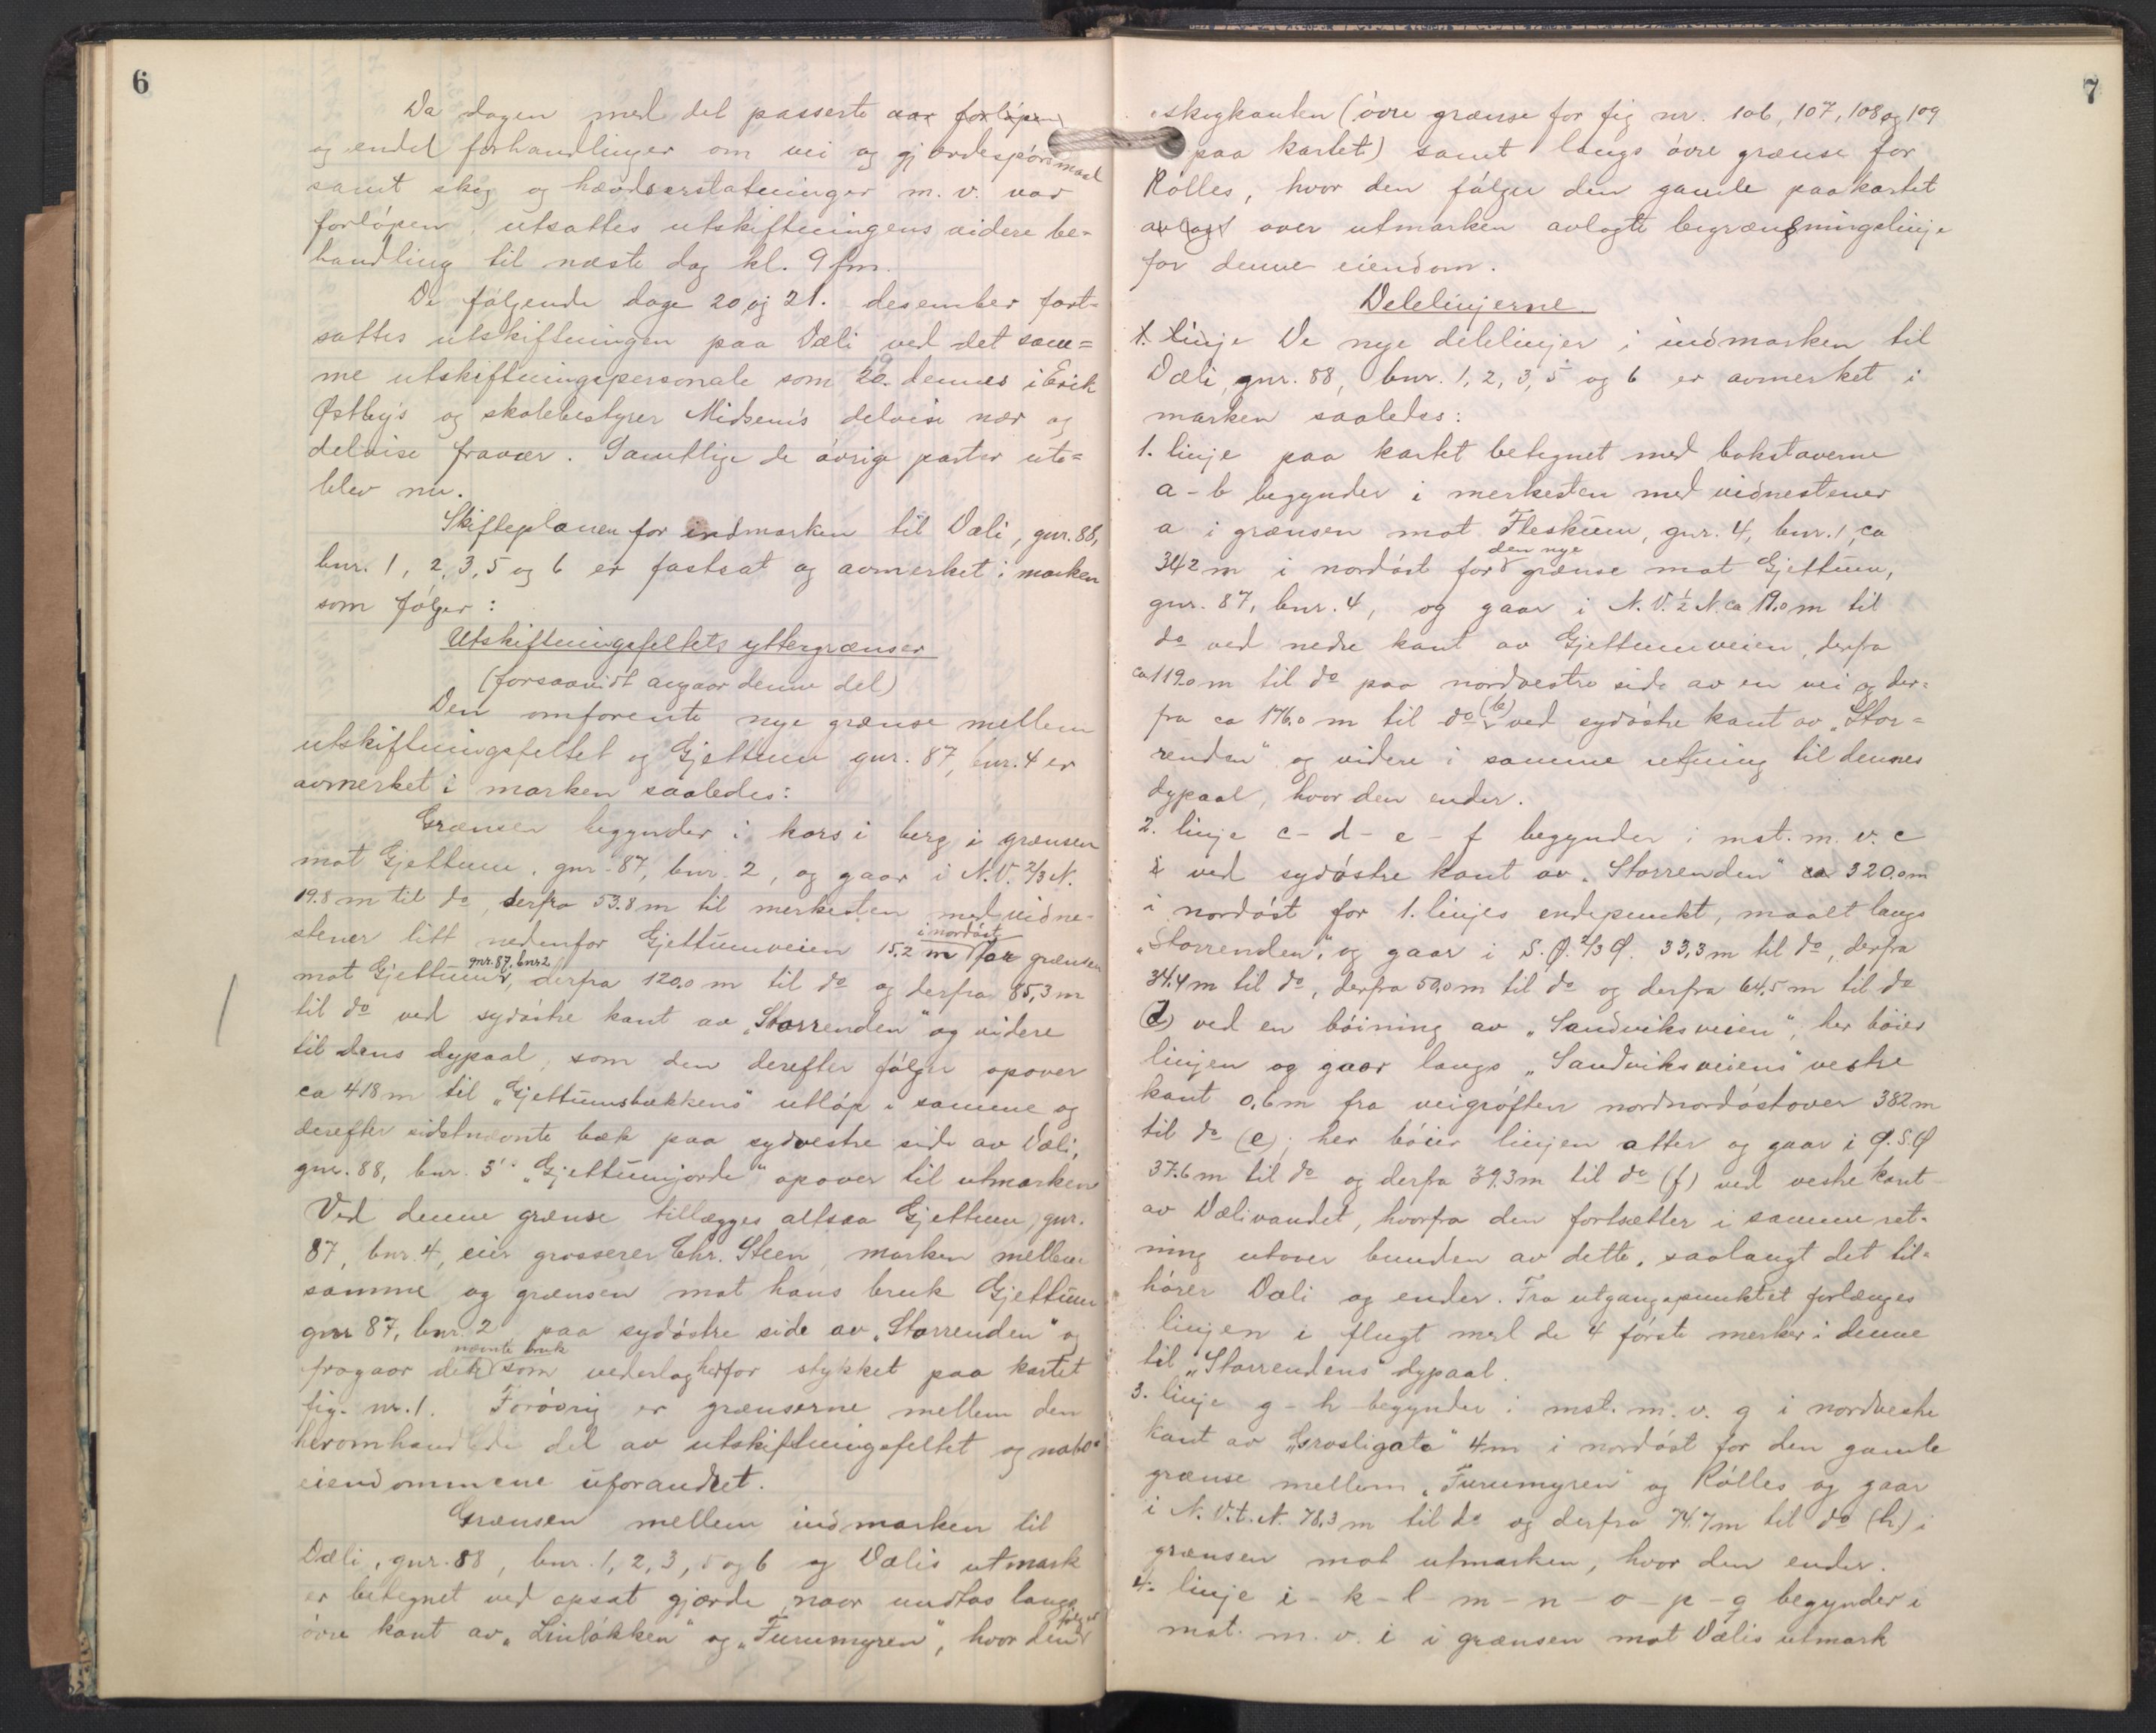 6
Da dagen med det passerte aar forløpen
og endel forhandlinger om vei og gjærdespørsmaal
samt skog og hævdserstatninger m. v. var
forløpen, utsattes utskiftningens videre be-
handling til næste dag kl. 9 fm.
De følgende dage 20 og 21. desember fort-
sattes utskiftningen paa Dæli ved det sam-
me utskiftningspersonale som 19. dennes i Erik
Østby's og skolebestyrer Midsem's delvise nær og
delvise fravær. Samtlige de øvrige parter ute-
blev nu.
Skifteplanen for indmarken til Dæli, gnr. 88,
bnr. 1, 2, 3, 5 og 6 er fastsat og avmerket i marken
som følger:
Utskiftningsfeltets yttergrænser
(forsaavidt angaar denne del)
Den omforente nye grænse mellem
utskiftningsfeltet og Gjettum gnr. 87, bnr. 4 er
avmerket i marken saaledes:
Grænsen begynder i kors i berg i grænsen
mot Gjettum, gnr. 87, bnr. 2, og gaar i N.V. 2/3 N.
19.8 m til do, derfra 53.8 m til merkesten med vidne-
stener litt nedenfor Gjettumveien 15,2 m i nordøst for grænsen
mot Gjettum gnr. 87, bnr 2, derfra 120,0 m til do og derfra 85,3 m
til do ved sydøstre kant av „Storrenden" og videre
til dens dypaal, som den derefter følger opover
ca 418 m til „Gjettumsbækkens" utløp i samme og
derefter sidstnævnte bæk paa sydvestre side av Dæli,
gnr. 88, bnr. 5's „Gjettumjorde" opover til utmarken
Ved denne grænse tillægges altsaa Gjettum, gnr.
87, bnr. 4, eier grosserer Chr. Steen, marken mellem
samme og grænsen mot hans bruk Gjettum
gnr 87, bnr. 2 paa sydøstre side av „Storrenden" og
fragaar nævnte bruk som vederlag herfor stykket paa kartet
fig. nr. 1. Forøvrig er grænserne mellem den
heromhandlede del av utskiftningsfeltet og nabo-
eiendommene uforandret.
Grænsen mellem indmarken til
Dæli, gnr. 88, bnr. 1, 2, 3, 5 og 6 og Dælis utmark
er betegnet ved opsat gjærde, naar undtas langs
øvre kant av „Linløkken" og „Furumyren", hvor den følger
7
skogkanten (øvre grænse for fig nr. 106, 107, 108 og 109
paa kartet) samt langs øvre grænse for
Rølles, hvor den følger den gamle paa kartet
avlagt over utmarken avlagte begrænsningslinje
for denne eiendom.
Delelinjerne
1. linje De nye delelinjer i indmarken til
Dæli, gnr. 88, bnr. 1, 2, 3, 5 og 6 er avmerket i
marken saaledes:
1. linje paa kartet betegnet med bokstaverne
a - b begynder i merkesten med vidnestener
a i grænsen mot Fleskum, gnr. 4, bnr. 1, ca
342 m i nordøst for den nye grænse mot Gjettum,
gnr. 87, bnr. 4, og gaar i N.V. ½ N. ca 19.0 m til
do ved nedre kant av Gjettumveien, derfra
ca 119.0 m til do paa nordvestre side av en vei og der-
fra ca 176.0 m til do (b) ved sydøstre kant av „Stor-
renden" og videre i samme retning til dennes
dypaal, hvor den ender.
2. linje c - d - e - f begynder i mst. m. v. c
i ved sydøstre kant av „Storrenden" ca 320.0 m
i nordøst for 1. linjes endepunkt, maalt langs
„Storrenden", og gaar i S.Ø. 2/3 Ø. 33,3 m til do, derfra
34.4 m til do, derfra 50.0 m til do og derfra 64,5 m til do
(d) ved en bøining av „Sandviksveien"; her bøier
linjen og gaar langs „Sandviksveiens" vestre
kant 0,6 m fra veigrøften nordnordøstover 382 m
til do (e); her bøier linjen atter og gaar i Ø.S.Ø
37.6 m til do og derfra 39.3 m til do (f) ved vestre kant
av Dælivandet, hvorfra den fortsætter i samme ret-
ning utover bunden av dette, saalangt det til-
hører Dæli og ender. Fra utgangspunktet forlænges
linjen i flugt med de 4 første merker i denne
til „Storrendens" dypaal.
3. linje g - h begynder i mst. m. v. g i nordvestre
kant av „Grosligata" 4 m i nordøst for den gamle
grænse mellem „Furumyren" og Rølles og gaar
i N.V.t.N. 78.3 m til do og derfra 74.7 m til do (h) i
grænsen mot utmarken, hvor den ender.
4. linje i - k - l - m - n - o - p - q begynder i
mst. m. v. i i grænsen mot Dælis utmark